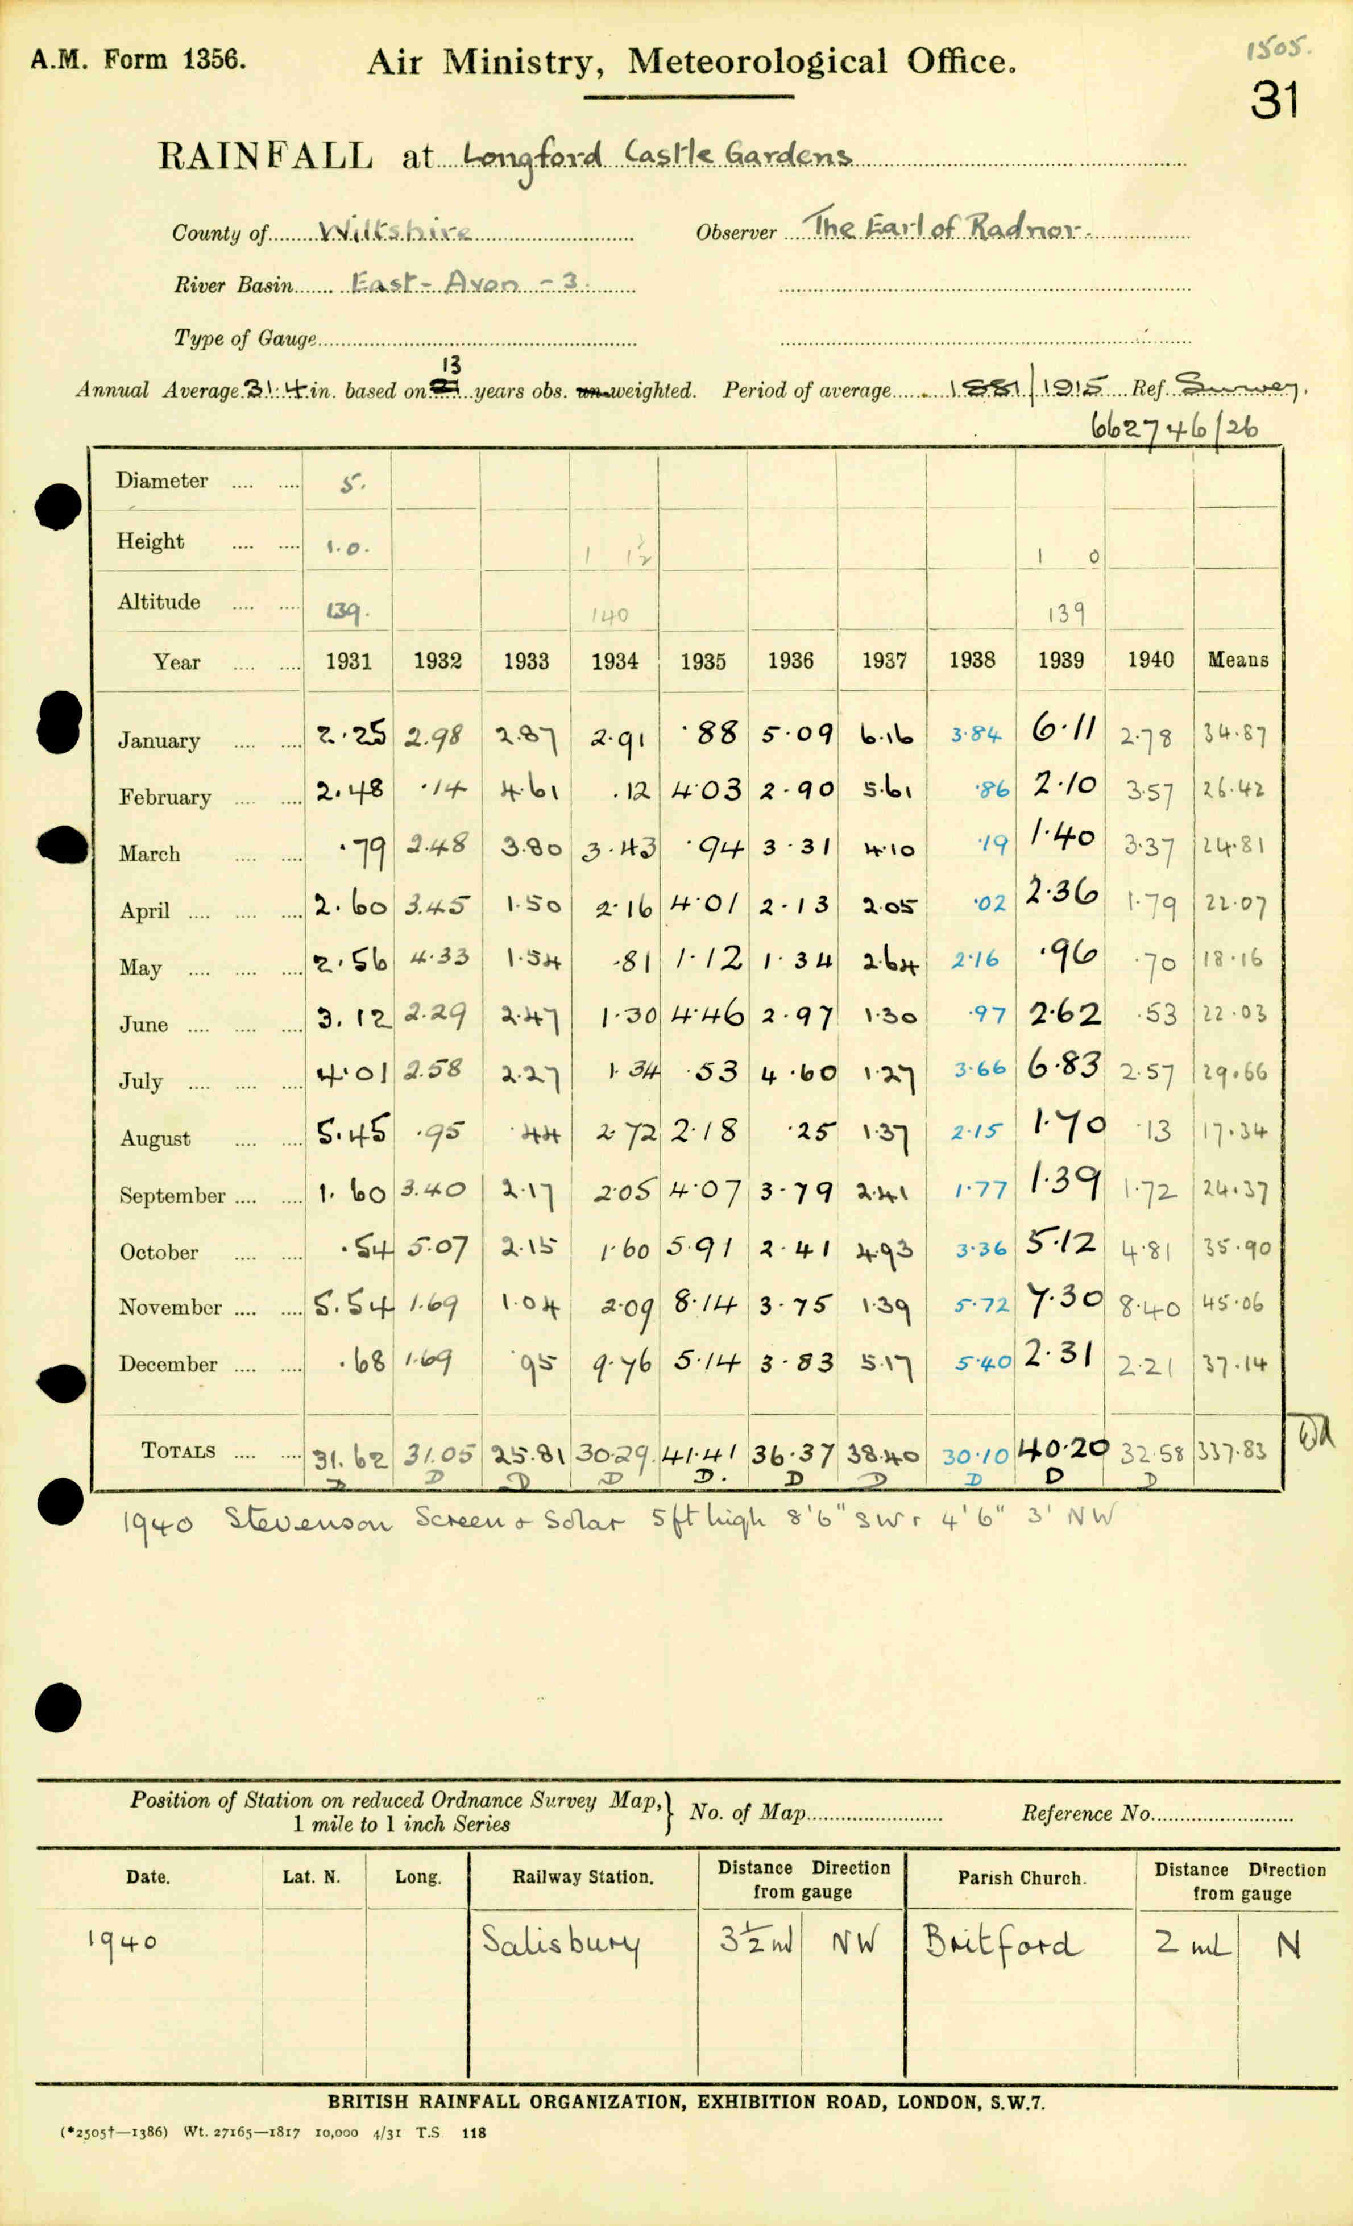 1505.
A.M. Form 1356. Air Ministry, Meteorological Office.
31
RAINFALL at Longford Castle Gardens
County of Wiltshire Observer The Earl of Radnor.
River Basin East - Avon - 3.
Type of Gauge
13
Annual Average 31.4 in. based on years obs. un-weighted. Period of average 1881/1915 Ref. Survey.
662746/26
Diameter 5.
Height 1.0. 1 1½ 1 0
Altitude 139. 140 139
Year 1931 1932 1933 1934 1935 1936 1937 1938 1939 1940 Means
January 2.25 2.98 2.87 2.91 .88 5.09 6.16 3.84 6.11 2.78 34.87
February 2.48 .14 4.61 .12 4.03 2.90 5.61 .86 2.10 3.57 26.42
March .79 2.48 3.80 3.43 .94 3.31 4.10 .19 1.40 3.37 24.81
April 2.60 3.45 1.50 2.16 4.01 2.13 2.05 .02 2.36 1.79 22.07
May 2.56 4.33 1.54 .81 1.12 1.34 2.64 2.16 .96 .70 18.16
June 3.12 2.29 2.47 1.30 4.46 2.97 1.30 .97 2.62 .53 22.03
July 4.01 2.58 2.27 1.34 .53 4.60 1.27 3.66 6.83 2.57 29.66
August 5.45 .95 .44 2.72 2.18 .25 1.37 2.15 1.70 .13 17.34
September 1.60 3.40 2.17 2.05 4.07 3.79 2.41 1.77 1.39 1.72 24.37
October .54 5.07 2.15 1.60 5.91 2.41 4.93 3.36 5.12 4.81 35.90
November 5.54 1.69 1.04 2.09 8.14 3.75 1.39 5.72 7.30 8.40 45.06
December .68 1.69 .95 9.76 5.14 3.83 5.17 5.40 2.31 2.21 37.14
TOTALS 31.62 31.05 25.81 30.29 41.41 36.37 38.40 30.10 40.20 32.58 337.83
D D D D D. D D D D D
1940 Stevenson Screen & Solar 5ft high 8'6" SW & 4'6" 3' NW
Position of Station on reduced Ordnance Survey Map, No. of Map Reference No.
1 mile to 1 inch Series
Date. Lat. N. Long. Railway Station. Distance Direction from gauge Parish Church. Distance Direction from gauge
1940 Salisbury 3½ ml NW Britford 2 ml N
BRITISH RAINFALL ORGANIZATION, EXHIBITION ROAD, LONDON, S.W.7.
(*2505†—1386) Wt. 27165—1817 10,000 4/31 T.S 118